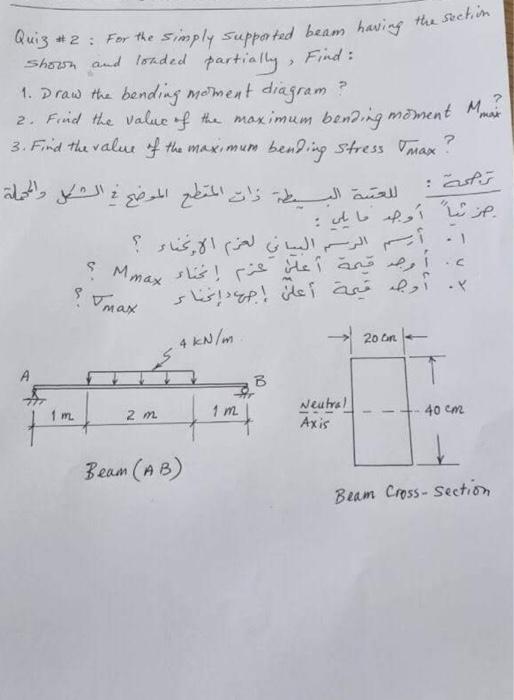 Quiz #2 : For the simply supported beam having the section
shown and loaded partially, Find :
1. Draw the bending moment diagram ?
2. Find the value of the maximum bending moment Mmax ?
3. Find the value of the maximum bending stress σmax ?
ترجمة : للعتبة البسيطة ذات المقطع الموضح في الشكل والمحملة
جزئياً أوجد ما يلي :
١. أرسم الرسم البياني لعزم الانحناء ؟
٢. أوجد قيمة أعلى عزم إنحناء Mmax ؟
٣. أوجد قيمة أعلى إجهاد إنحناء σmax ؟
4 kN/m
A
B
1 m
2 m
1 m
Beam (AB)
20 cm
Neutral
Axis
40 cm
Beam Cross-section